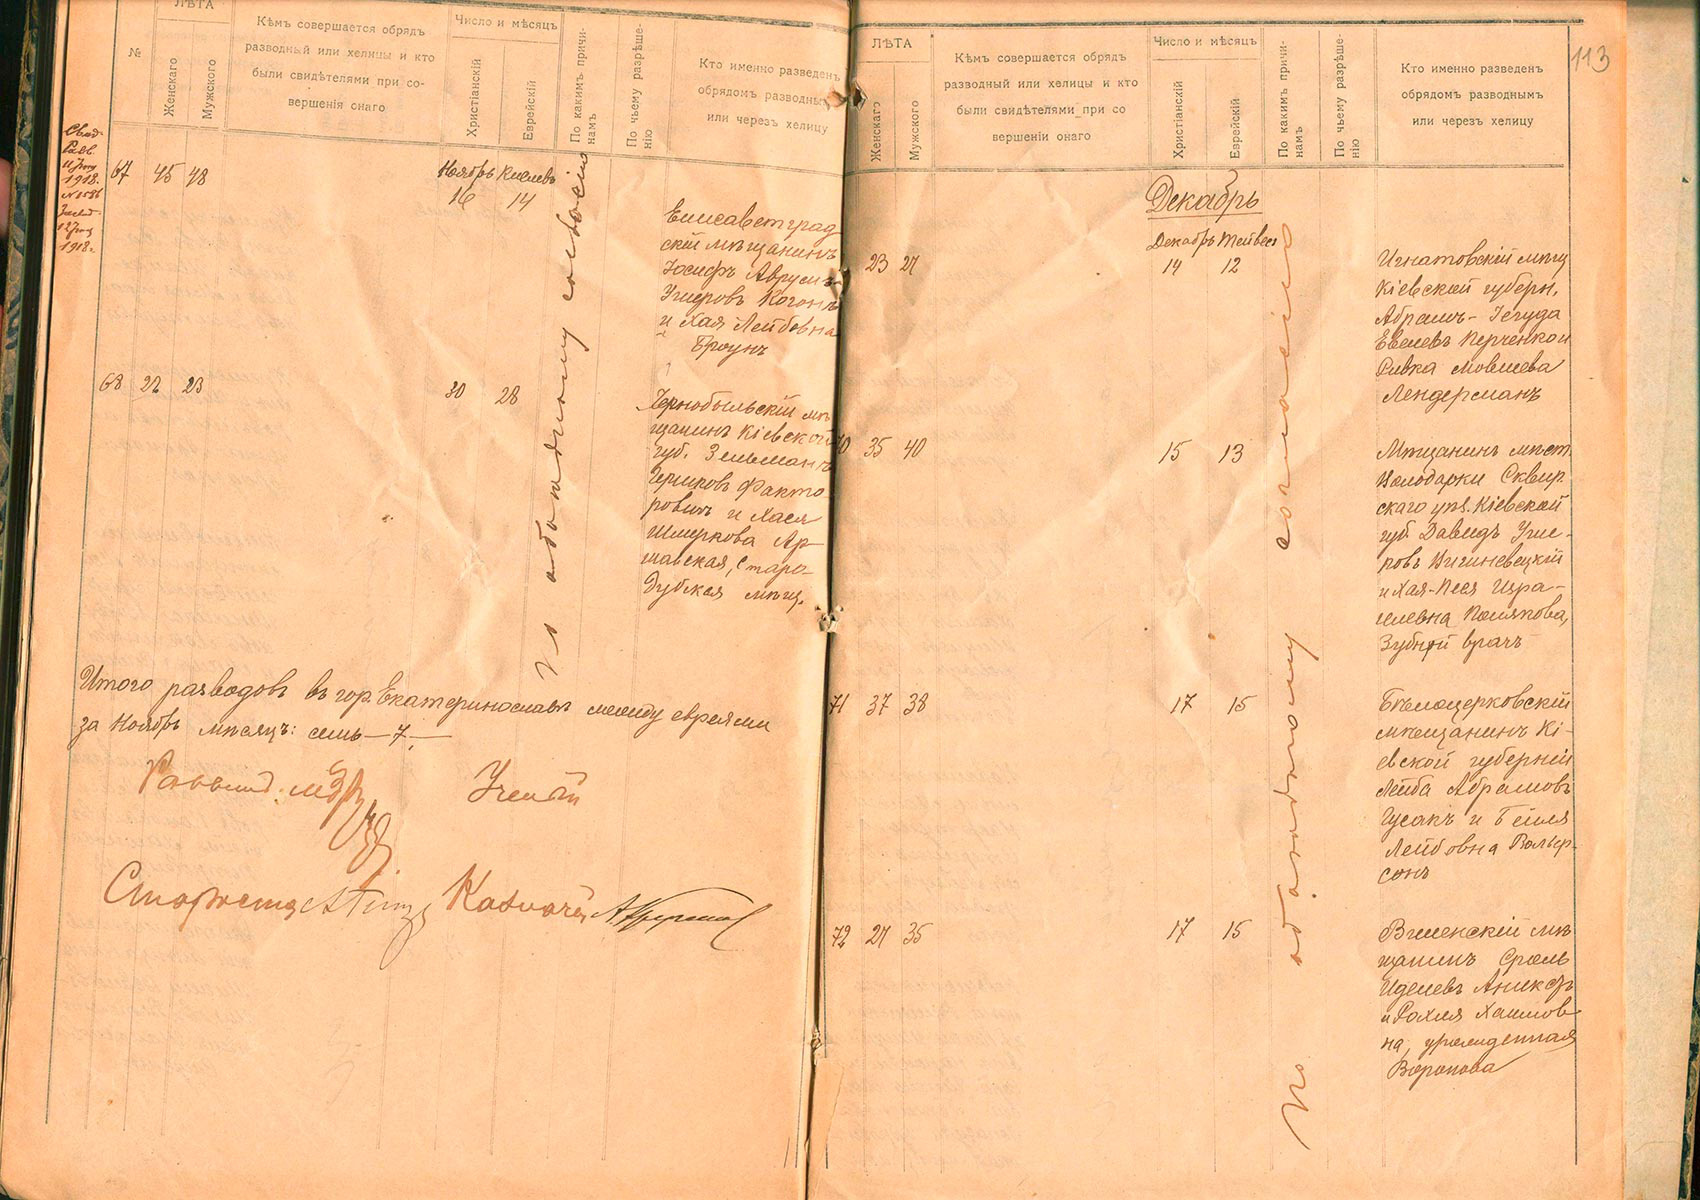 №
ЛѢТА
Женскаго
Мужского
Кѣмъ совершается обрядъ
разводный или хелицы и кто
были свидѣтелями при со-
вершенія онаго
Число и мѣсяцъ
Христіанскій
Еврейскій
По какимъ причи-
намъ
По чьему разрѣше-
нію
Кто именно разведенъ
обрядомъ разводнымъ
или черезъ хелицу
1918.
1918г.
67 45 48
Ноябрь Кислевъ
16 14
Елисаветград
скій мѣщанинъ
Іосифъ Аврумъ-
Ушеровъ Когонъ
и Хая Лейбовна
Броунъ
68 22 23
30 28
Чернобыльскій мѣ
щанинъ Кіевской
губ. Зельманъ
Гершковъ Факто-
ровичъ и Хася
Шмеркова Ар-
шавская, Старо-
дубская мѣщ.
По обоюдному согласію
Итого разводовъ въ гор. Екатеринославѣ между евреями
за Ноябрь мѣсяцъ: семь—7.—
Раввинъ
Ученый
Староста
Казначей
113
ЛѢТА
Женскаго
Мужского
Кѣмъ совершается обрядъ
разводный или хелицы и кто
были свидѣтелями при со
вершеніи онаго
Число и мѣсяцъ
Христіанскій
Еврейскій
По какимъ причи-
намъ
По чьему разрѣше-
нію
Кто именно разведенъ
обрядомъ разводнымъ
или черезъ хелицу
Декабрь
Декабрь Тейвесъ
23 27
14 12
Игнатовскій мѣщ
Кіевской губерн.
Абрамъ-Іегуда
Евелевъ Керченкой
Ривка Мовшева
Лендерманъ
70 35 40
15 13
Мѣщанинъ мѣст.
Володарки Сквир
скаго уѣз. Кіевской
губ. Давидъ Уше-
ровъ Вишневецкій
и Хая-Песя Изра-
илевна Полякова,
Зубной врачъ
71 37 38
17 15
Бѣлоцерковскій
мѣщанинъ Кі-
евской губерніи
Лейба Абрамовъ
Гусакъ и Бейля
Лейбовна Вольф-
сонъ
72 27 35
17 15
Виленскій мѣ
щанинъ Сроль
Иделевъ
и Рохля Хаимов
на, урожденная
Воронова
По обоюдному согласію